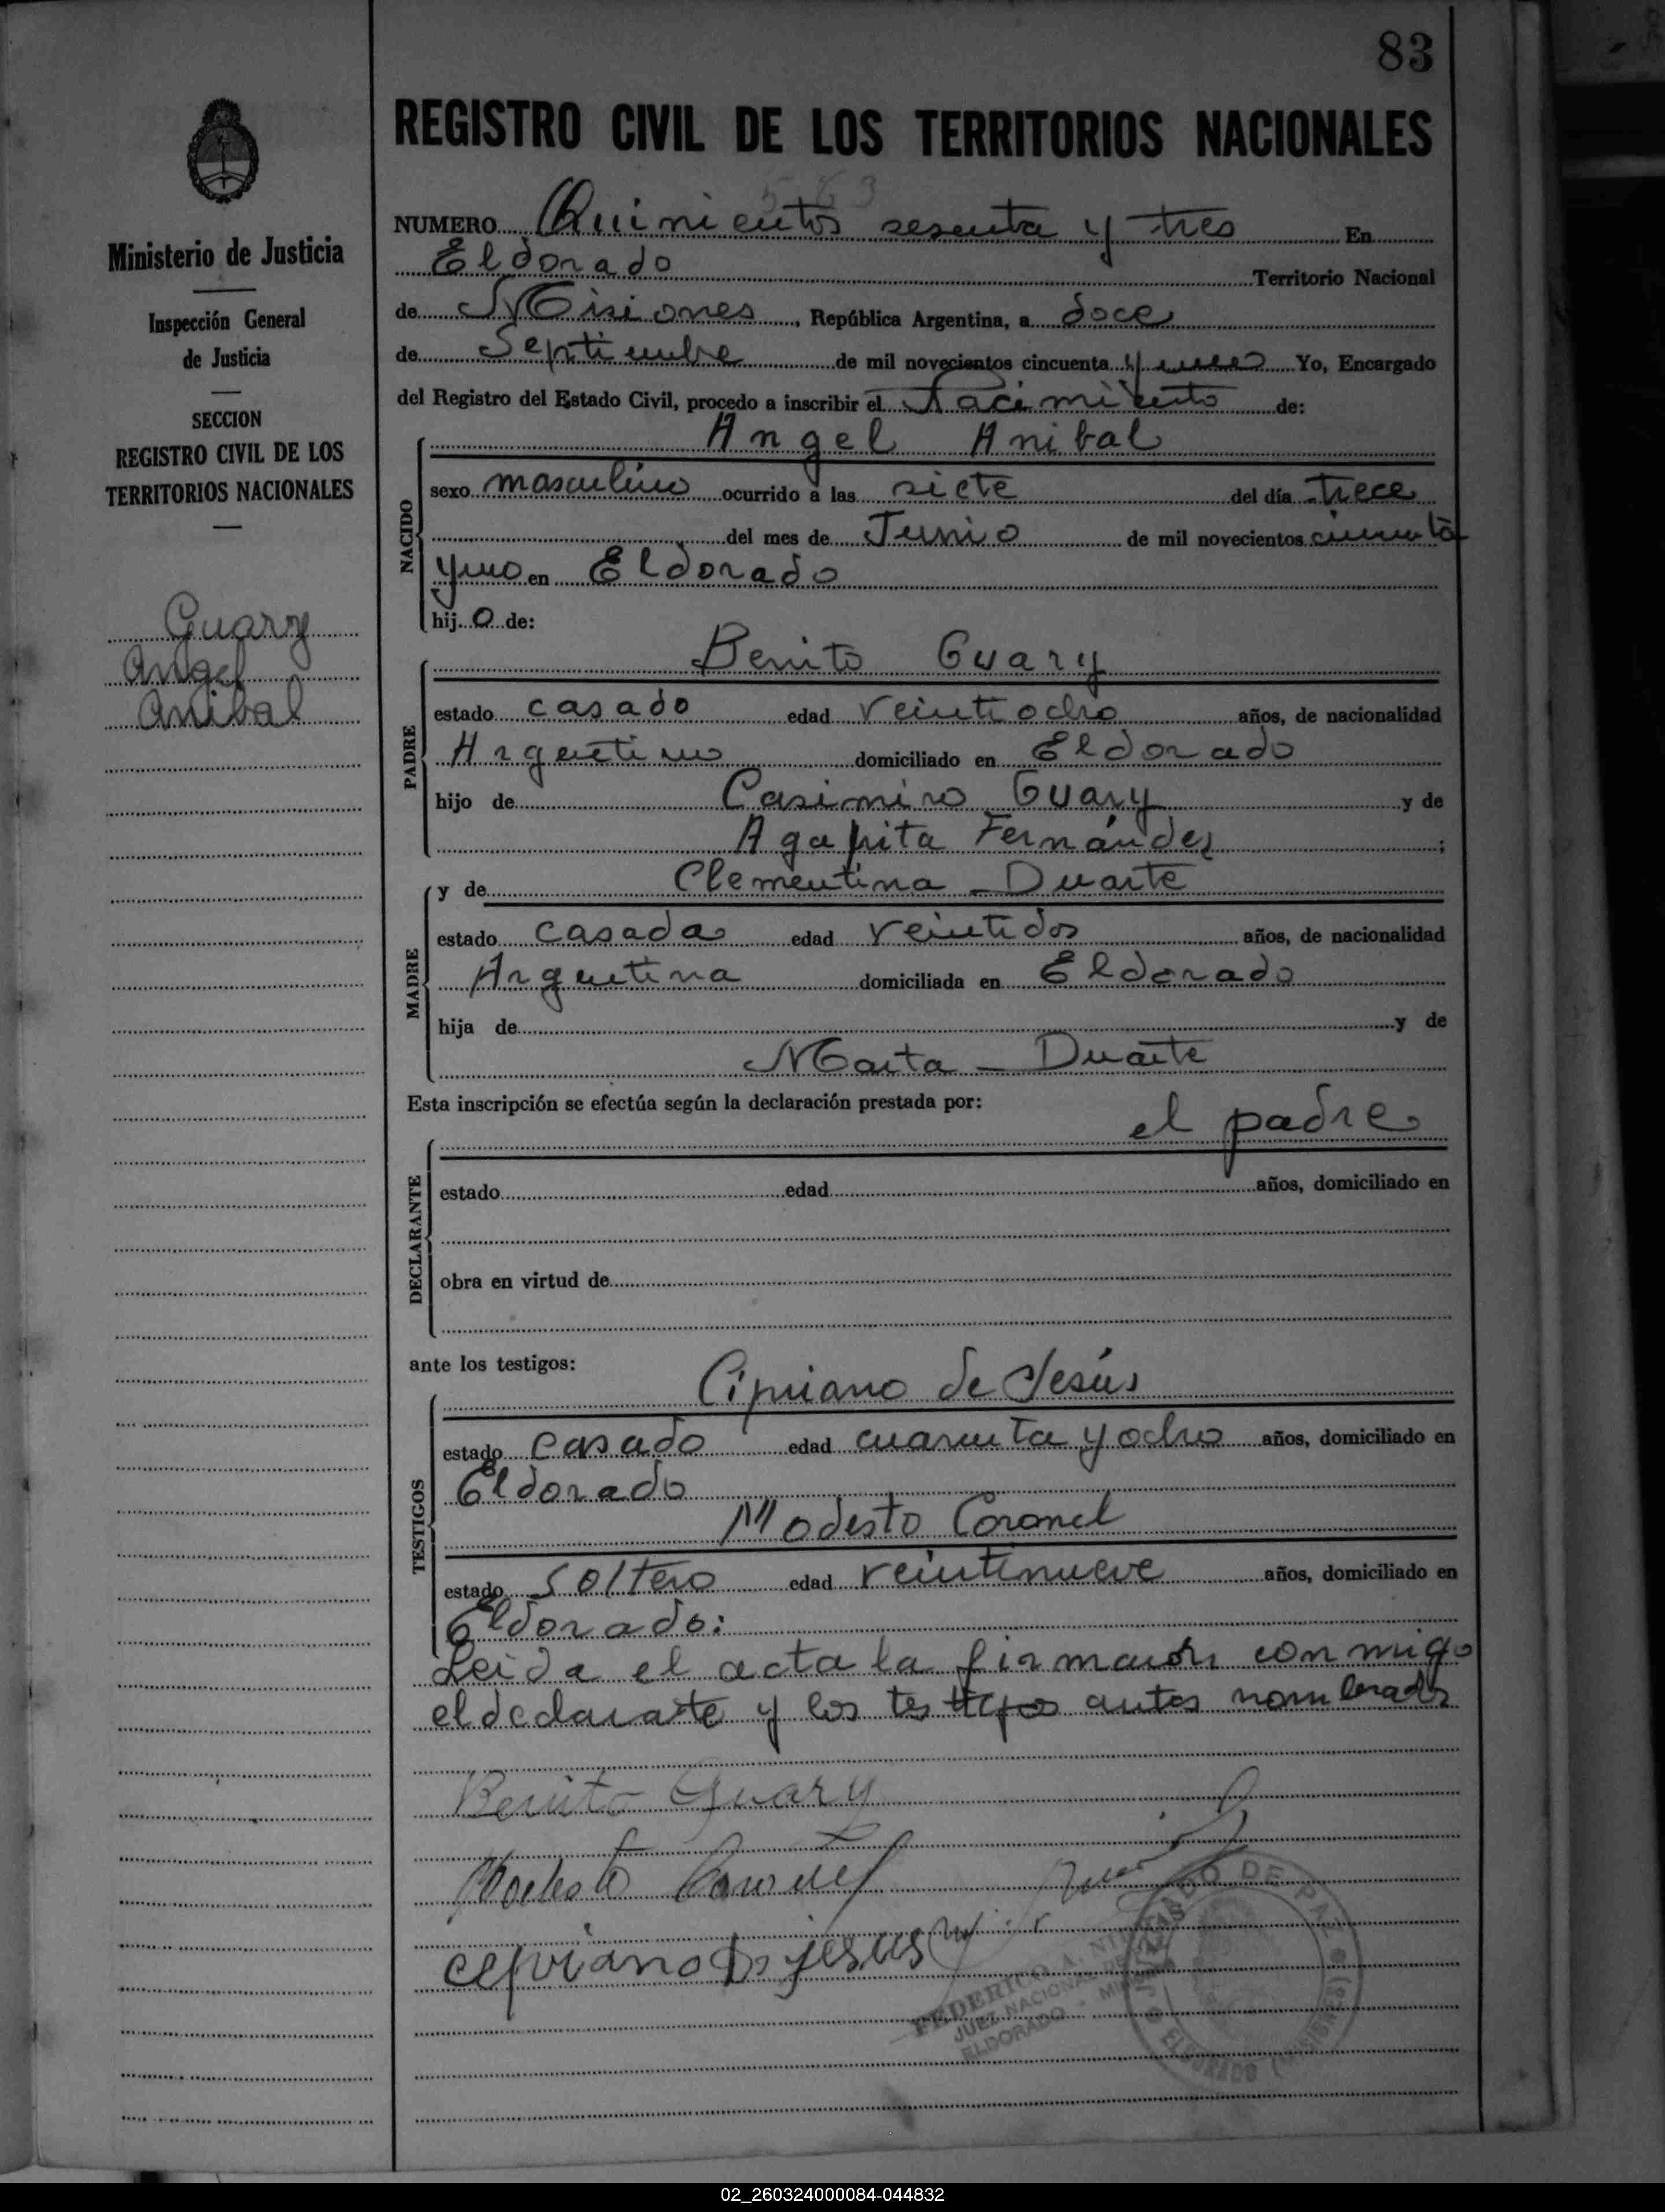 83
REGISTRO CIVIL DE LOS TERRITORIOS NACIONALES
Ministerio de Justicia
Inspección General
de Justicia
SECCION
REGISTRO CIVIL DE LOS
TERRITORIOS NACIONALES
Guary
Angel
Anibal
563
NUMERO Quinientos sesenta y tres En
Eldorado Territorio Nacional
de Misiones, República Argentina, a doce
de Septiembre de mil novecientos cincuenta y uno Yo, Encargado
del Registro del Estado Civil, procedo a inscribir el Nacimiento de:
Angel Anibal
NACIDO
sexo masculino ocurrido a las siete del día trece
del mes de Junio de mil novecientos cincuenta
y uno en Eldorado
hijo de:
Benito Guary
PADRE
estado casado edad veintiocho años, de nacionalidad
Argentino domiciliado en Eldorado
hijo de Casimiro Guary y de
Agapita Fernández;
y de Clementina - Duarte
MADRE
estado casada edad veintidos años, de nacionalidad
Argentina domiciliada en Eldorado
hija de y de
Marta - Duarte
Esta inscripción se efectúa según la declaración prestada por:
el padre
DECLARANTE
estado edad años, domiciliado en
obra en virtud de
ante los testigos:
Cipriano de Jesús
TESTIGOS
estado casado edad cuarenta y ocho años, domiciliado en
Eldorado
Modesto Coronel
estado soltero edad veintinueve años, domiciliado en
Eldorado:
Leida el acta la firmaron conmigo
el declarante y los testigos antes nombrados
Benito Guary
Modesto Coronel
cepriano D jesus
FEDERICO A.
JUEZ NACIONAL DE PAZ
ELDORADO - MISIONES
JUZGADO DE PAZ
ELDORADO (MISIONES)
02_260324000084-044832